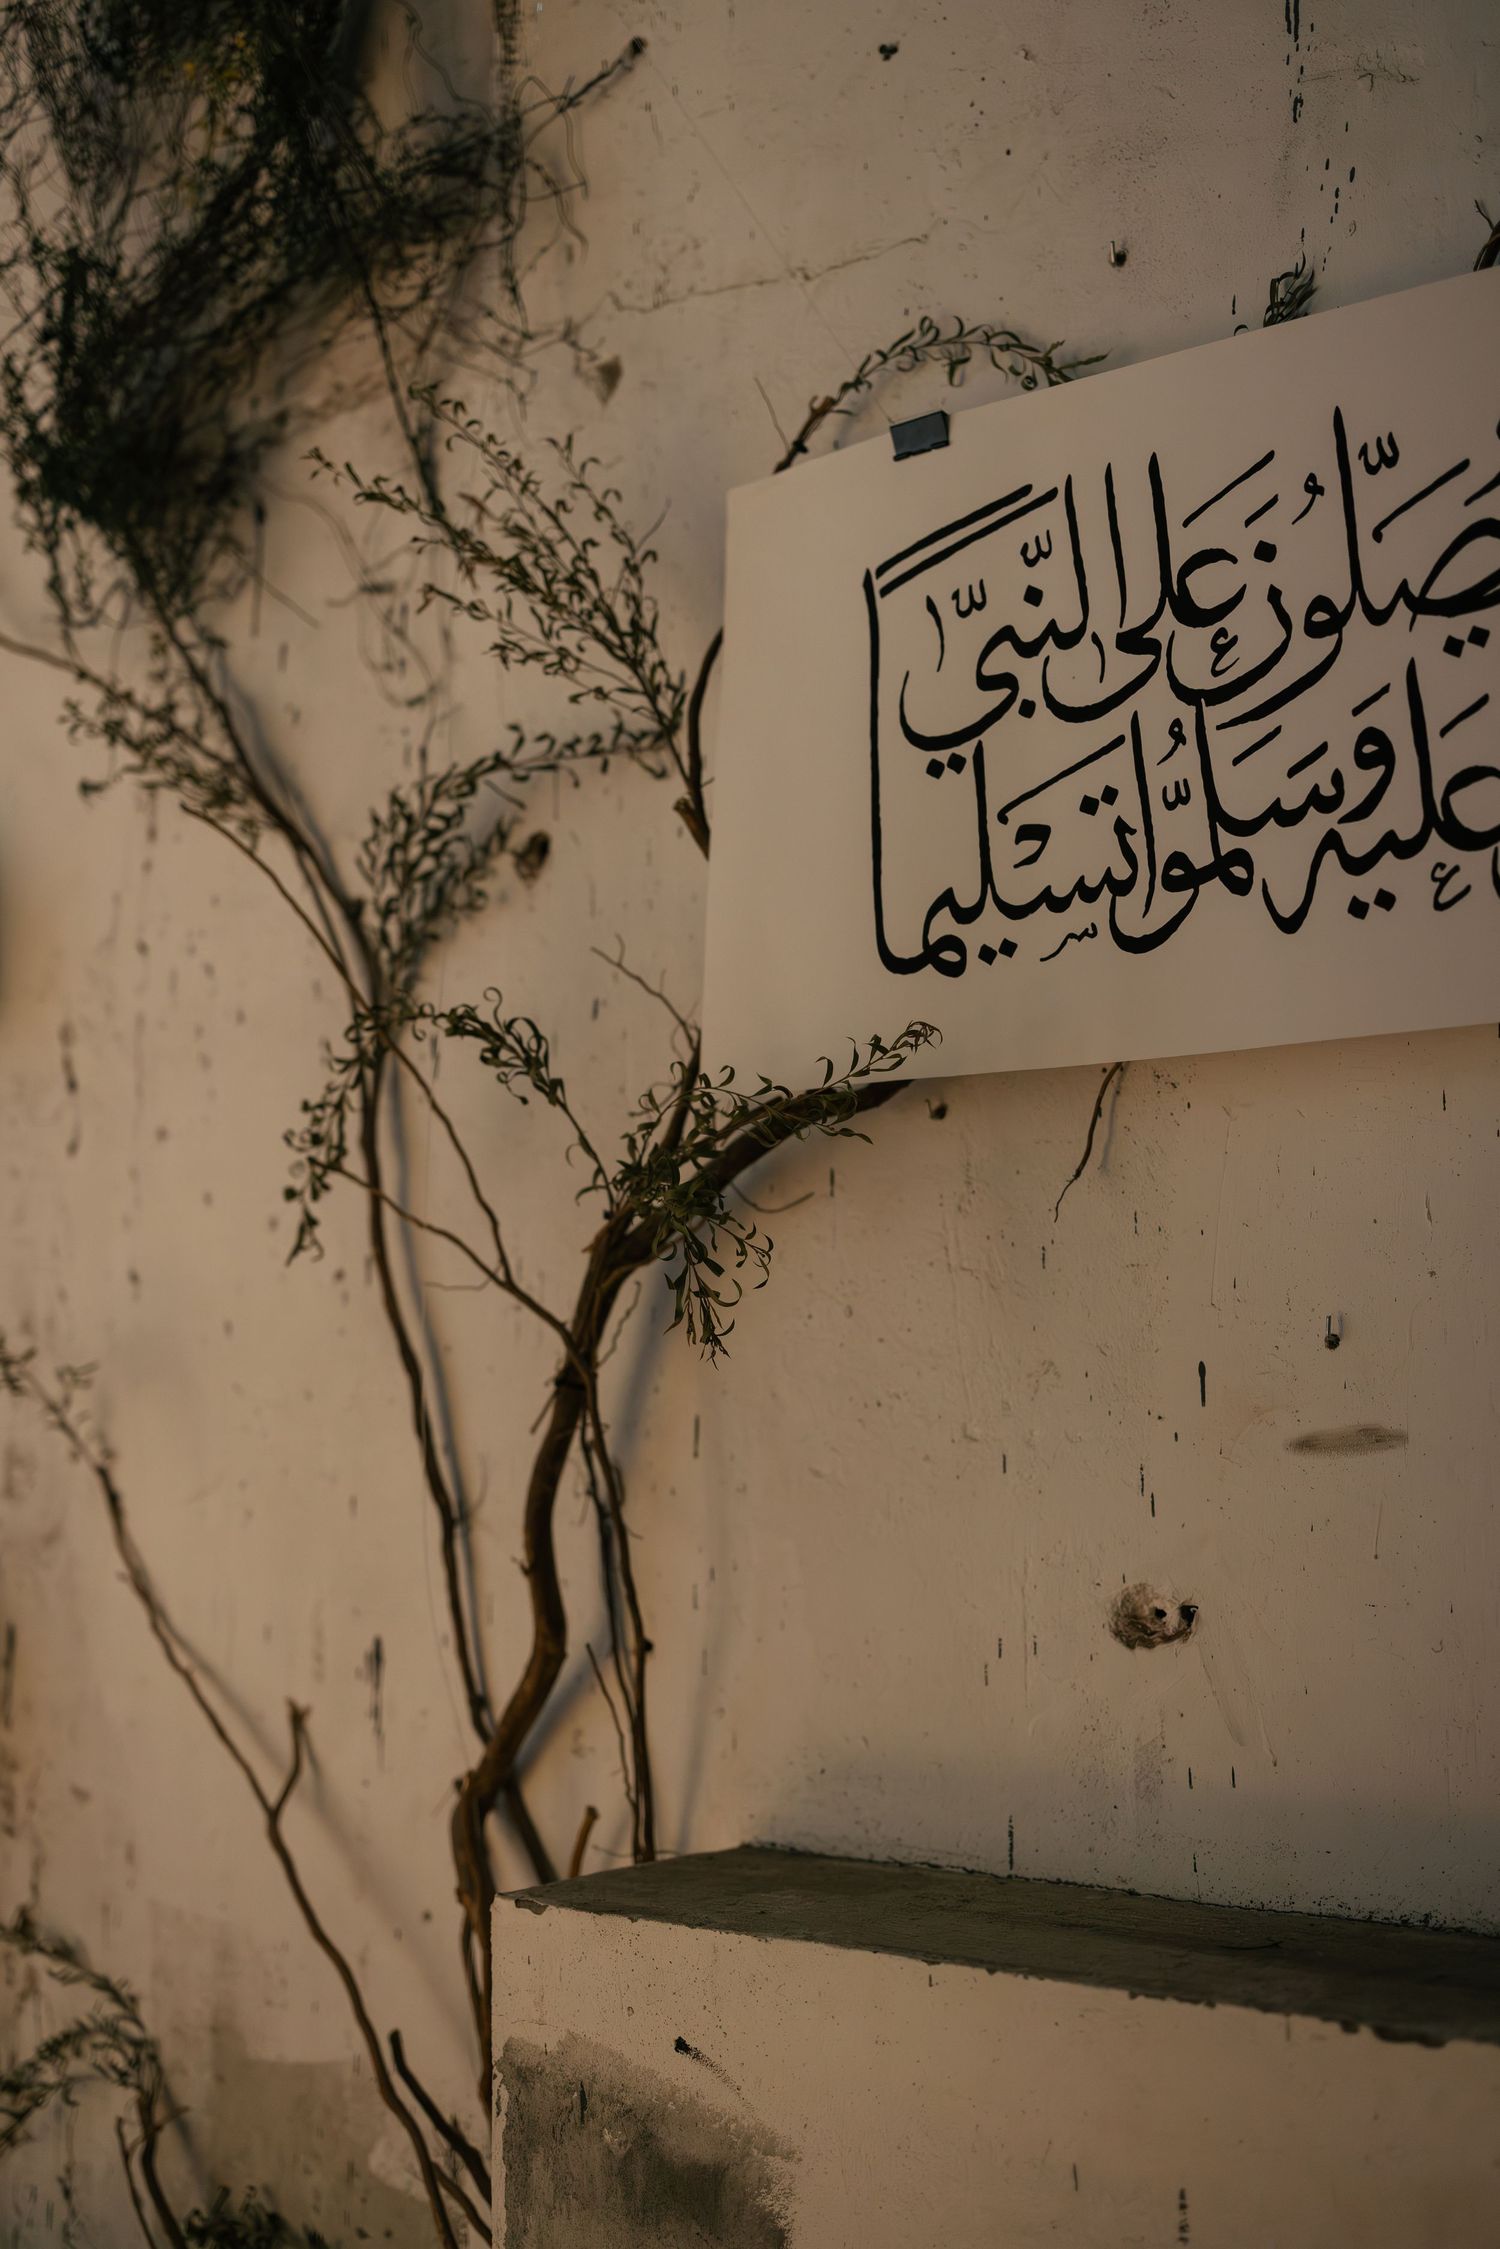 يُصَلُّونَ عَلَى النَّبِيِّ
عَلَيْهِ وَسَلِّمُوا تَسْلِيمًا